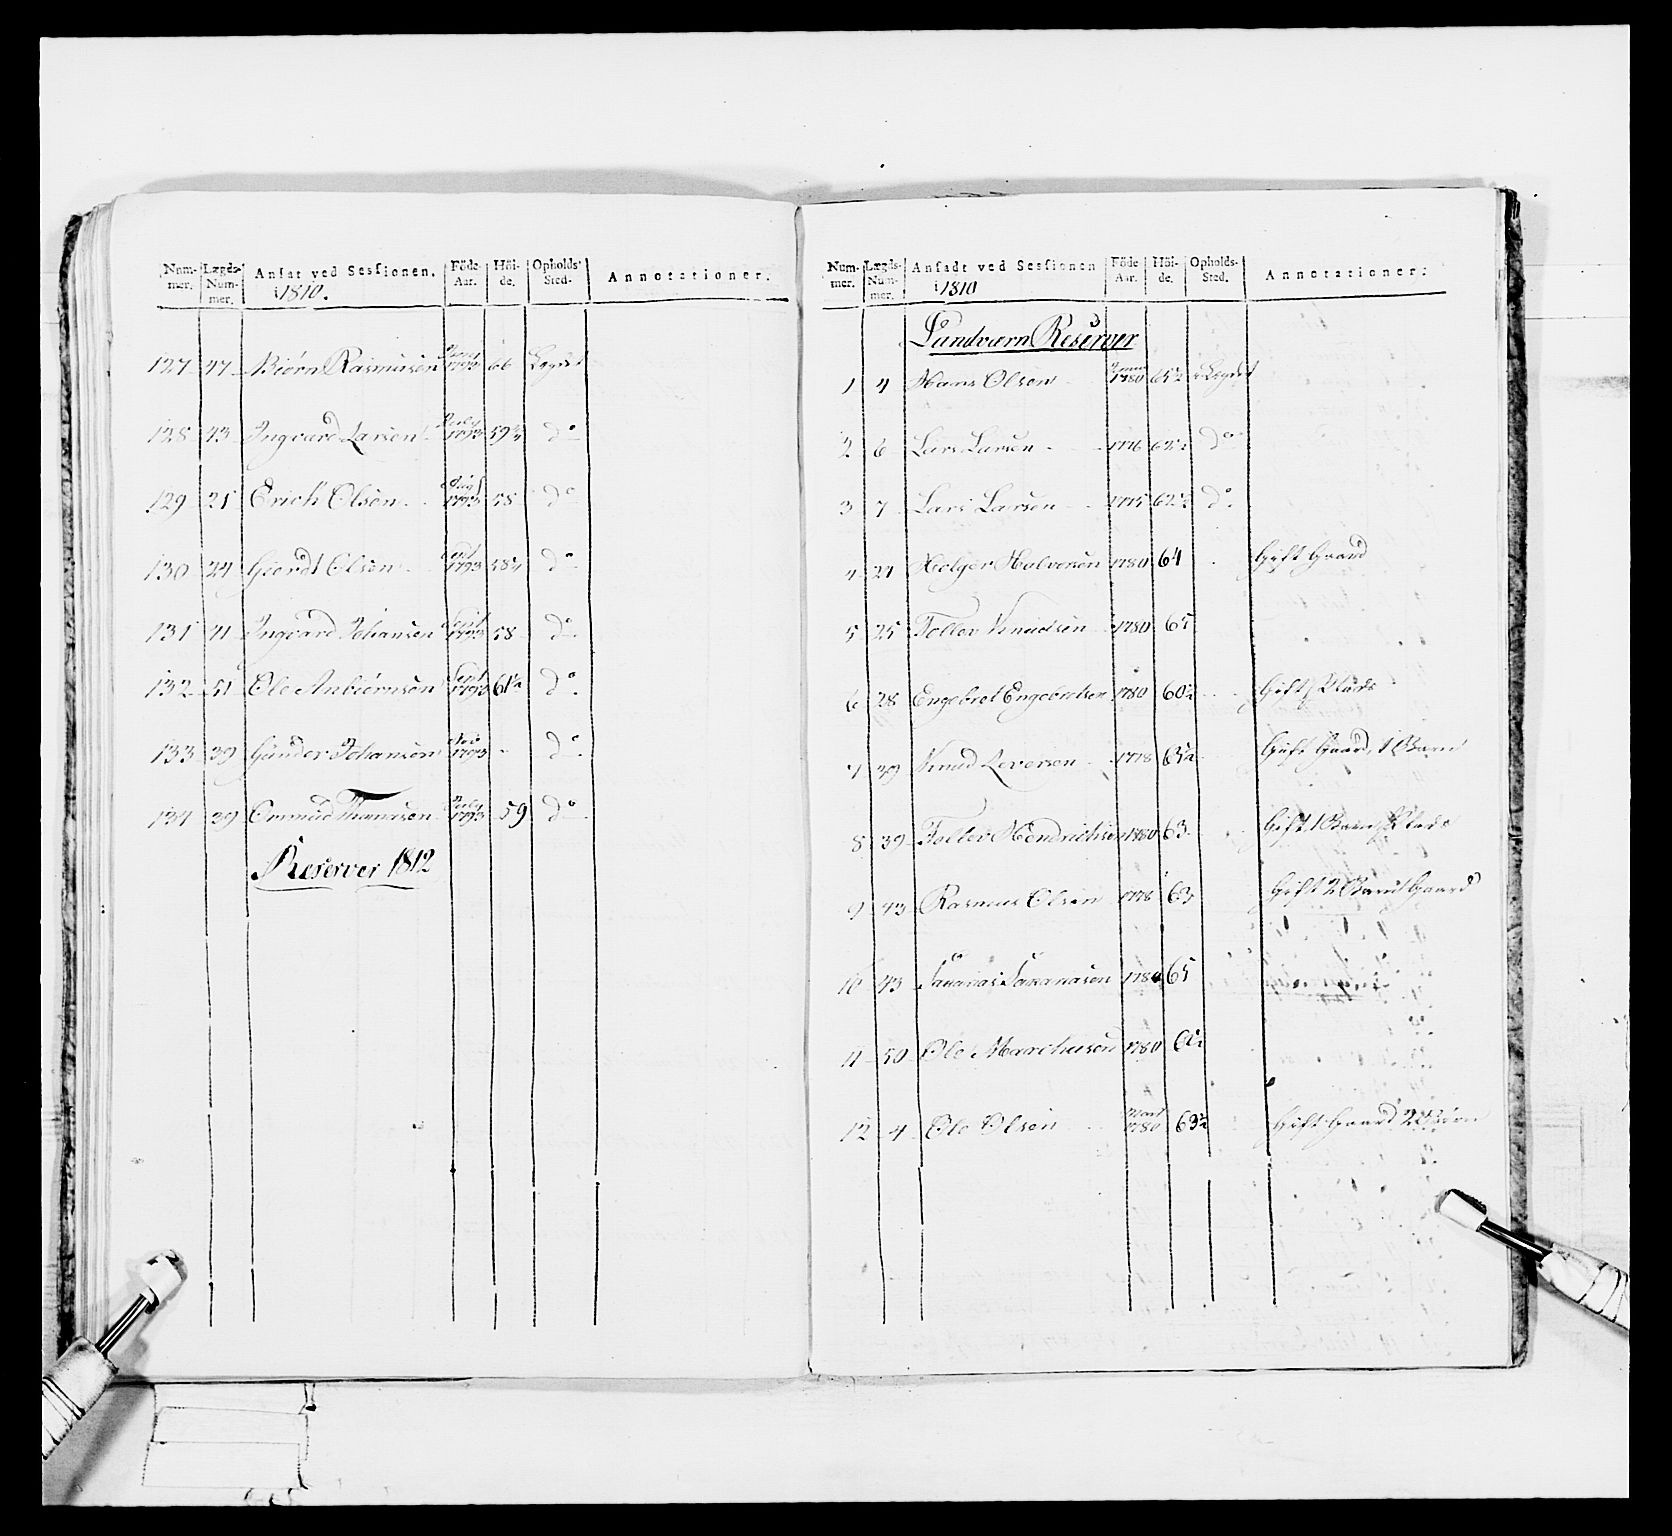 Num-mer. Lægds-Num-mer. Ansat ved Sessionen. i 1810. Föde Aar. Höi-de. Opholds-Sted. Annotationer.
127 47 Biørn Rasmusen 1793 66 Legdet
128 43 Ingvard Larsen July 1793 59 1/2 do
129 21 Erich Olsen Aug 1793 58 do
130 24 Giordt Olsen Sept 1793 58 1/2 do
131 41 Ingvard Johansen Sept 1793 58 do
132 51 Ole Anbiörnsen Sept 1793 61 1/2 do
133 39 Gunder Johansen Nov 1793 - do
134 39 Ommund Thomasen July 1793 59 do
Reserver 1812
Num-mer. Lægds-Num-mer. Ansadt ved Sessionen i 1810 Föde Aar. Höi-de. Opholds-Sted. Annotationer.
Landværn Reserver
1 4 Hans Olsen 1780 65 1/2 Legdet
2 6 Lars Larsen 1776 62 1/2 do
3 7 Lars Larsen 1775 62 1/2 do
4 21 Holger Halvorsen 1780 64 Gift Gaard
5 25 Tollev Knudsen 1780 65
6 28 Engebret Engebretsen 1780 60 1/2 Gift Plads
7 39 Knud Leversen 1778 Gift Gaard, 1 Barn
8 39 Tollev Hendrichsen 1780 63 Gift 1 Barn Plads
9 43 Rasmus Olsen 1778 63 Gift 2 Barn Gaard
10 43 1780 65
11 50 Ole Marchusen 1780
12 4 Ole Olsen 1780 63 1/2 Gift Gaard 2 Börn